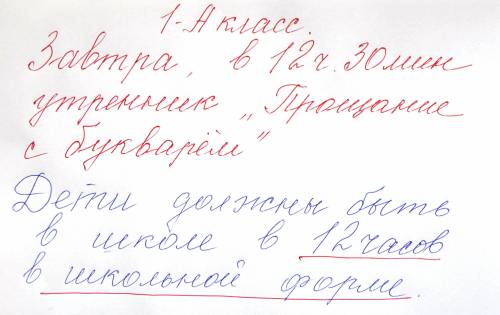 1-А класс.
Завтра, в 12 ч. 30 мин
утренник „Прощание
с букварём"
Дети должны быть
в школе в 12 часов
в школьной форме.